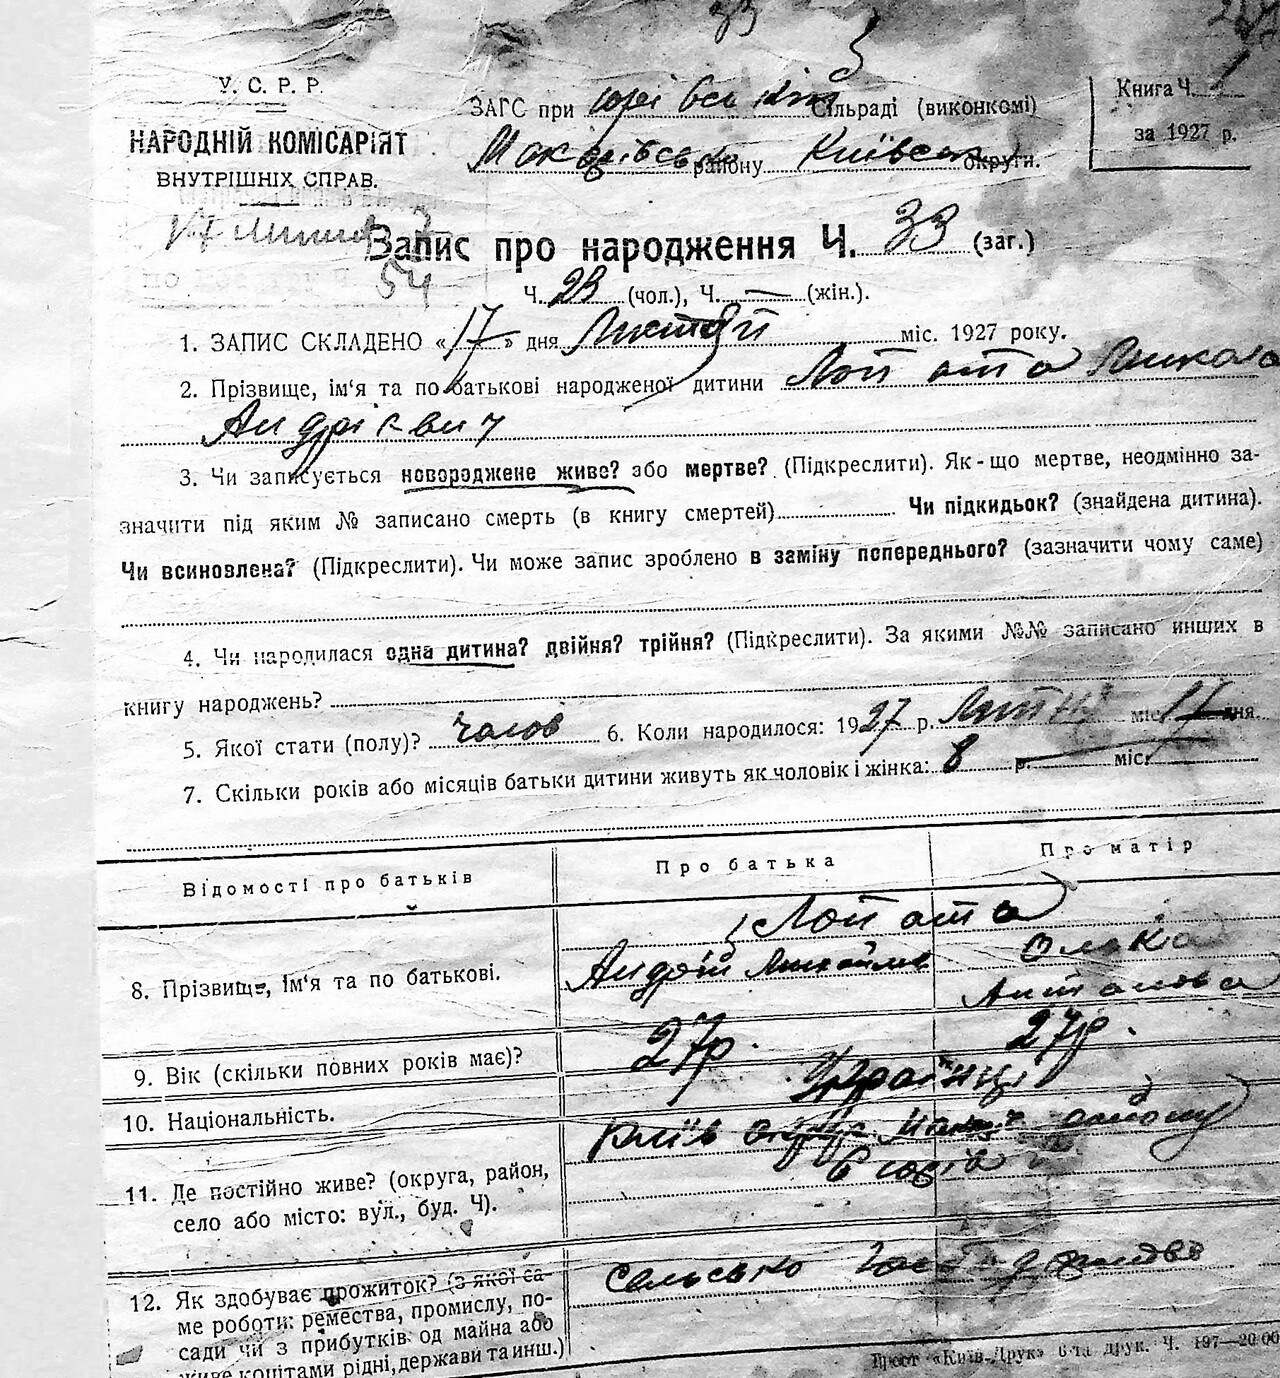 33
У. С. Р. Р.
НАРОДНІЙ КОМІСАРІЯТ
ВНУТРІШНІХ СПРАВ.
54
ЗАГС при Юрівській Сільраді (виконкомі)
Макарівсько району Київської округи.
Книга Ч. 1
за 1927 р.
Запис про народження Ч. 33 (заг.)
Ч. 23 (чол.), Ч. — (жін.).
1. ЗАПИС СКЛАДЕНО «17» дня міс. 1927 року.
2. Прізвище, ім'я та по батькові народженої дитини Лопата Микола
Андрієвич
3. Чи записується новороджене живе? або мертве? (Підкреслити). Як-що мертве, неодмінно за-
значити під яким № записано смерть (в книгу смертей) Чи підкидьок? (знайдена дитина).
Чи всиновлена? (Підкреслити). Чи може запис зроблено в заміну попереднього? (зазначити чому саме)
4. Чи народилася одна дитина? двійня? трійня? (Підкреслити). За якими №№ записано инших в
книгу народжень?
5. Якої стати (полу)? чолов 6. Коли народилося: 1927 р. міс. дня.
7. Скільки років або місяців батьки дитини живуть як чоловік і жінка: 8 р. міс.
Відомості про батьків
Про батька
Про матір
8. Прізвище, ім'я та по батькові.
Лопата
Андрій Михайлов
Антонова
9. Вік (скільки повних років має)?
27р.
27р.
10. Національність.
Українці
11. Де постійно живе? (округа, район,
село або місто: вул., буд. Ч).
Київ округ
12. Як здобуває прожиток? (з якої са-
ме роботи: ремества, промислу, по-
сади чи з прибутків од майна або
живе коштами рідні, держави та инш.)
Сельсько
Трест «Київ-Друк» 6-та друк. Ч. 197—20.00